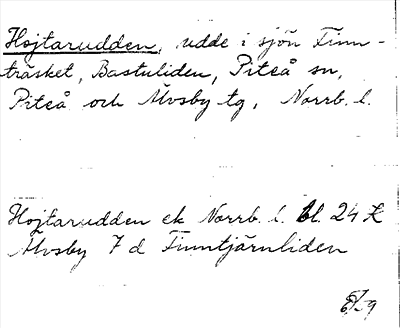 Hojtarudden, udde i sjön Finn-
träsket, Bastuliden, Piteå sn,
Piteå och Älvsby tg, Norrb. l.
Hojtarudden ek Norrb. l. bl. 24 K
Älvsby 7 d Finntjärnliden